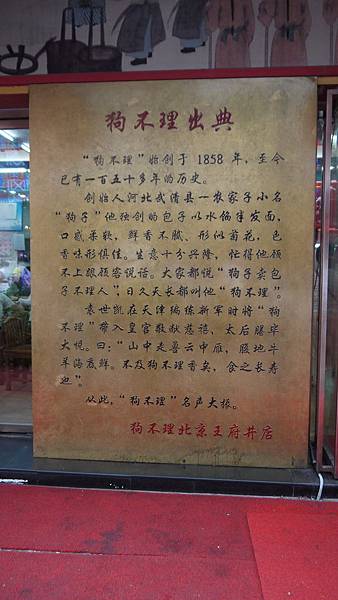 狗不理出典
“狗不理”始创于1858年，至今
已有一百五十多年的历史。
创始人河北武清县一农家子小名
“狗子”他独创的包子以水馅半发面，
口感柔软，鲜香不腻、形似菊花，色
香味形俱佳。生意十分兴隆，忙得他顾
不上跟顾客说话。大家都说“狗子卖包
子不理人”，日久天长都叫他“狗不理”。
袁世凯在天津编练新军时将“狗
不理”带入皇宫敬献慈禧，太后膳毕
大悦。曰：“山中走兽云中雁，腹地牛
羊海底鲜。不及狗不理香矣，食之长寿
也”。
从此，“狗不理”名声大振。
狗不理北京王府井店